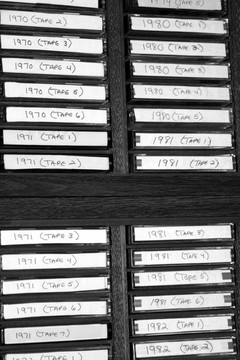 1970 (TAPE 2)
1970 (TAPE 3)
1970 (TAPE 4)
1970 (TAPE 5)
1970 (TAPE 6)
1971 (TAPE 1)
1971 (TAPE 2)
1971 (TAPE 3)
1971 (TAPE 4)
1971 (TAPE 5)
1971 (TAPE 6)
1971 (TAPE 7)
(TAPE 1)
1980 (TAPE 1)
1980 (TAPE 2)
1980 (TAPE 3)
1980 (TAPE 4)
1980 (TAPE 5)
1981 (TAPE 1)
1981 (TAPE 2)
1981 (TAPE 3)
1981 (TAPE 4)
1981 (TAPE 5)
1981 (TAPE 6)
1982 (TAPE 1)
1982 (TAPE 2)